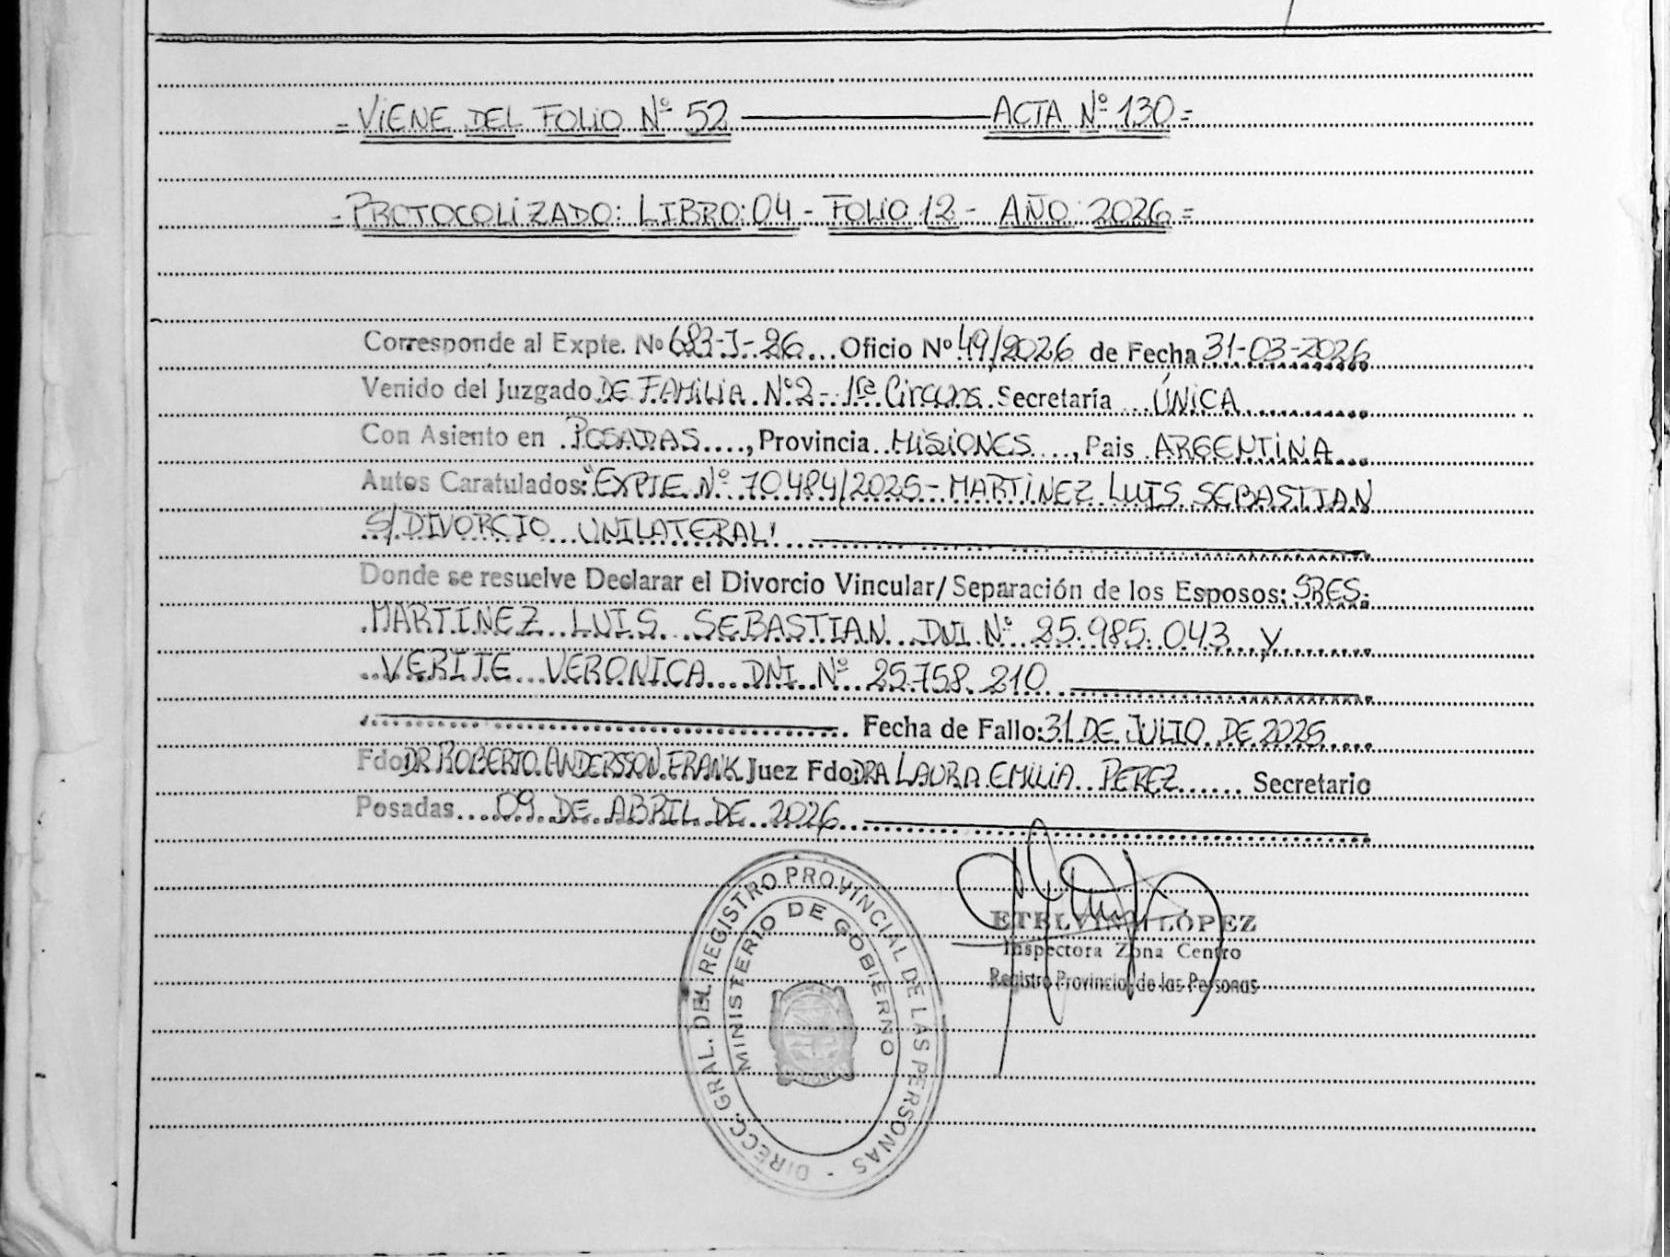 = VIENE DEL FOLIO Nº 52 ACTA Nº 130 =
= PROTOCOLIZADO: LIBRO: 04 - FOLIO 12 - AÑO 2026 =
Corresponde al Expte. Nº 683-J-26... Oficio Nº 49/2026 de Fecha 31-03-2026
Venido del Juzgado DE FAMILIA Nº 2 - 1ra Circuns. Secretaría ... ÚNICA
Con Asiento en POSADAS...., Provincia MISIONES..., Pais ARGENTINA
Autos Caratulados: "EXPTE Nº 70484/2025 - MARTINEZ LUIS SEBASTIAN
S/DIVORCIO UNILATERAL"
Donde se resuelve Declarar el Divorcio Vincular/ Separación de los Esposos: SRES.
MARTINEZ LUIS SEBASTIAN DNI Nº 25.985.043 y
VERITE VERONICA DNI Nº 25.758.210
Fecha de Fallo: 31 DE JULIO DE 2025
Fdo DR ROBERTO ANDERSSON FRANK Juez Fdo DRA LAURA EMILIA PEREZ...... Secretario
Posadas... 09 DE ABRIL DE 2026
ETELVINA LÓPEZ
Inspectora Zona Centro
Registro Provincial de las Personas
DIRECC. GRAL. DEL REGISTRO PROVINCIAL DE LAS PERSONAS -
MINISTERIO DE GOBIERNO